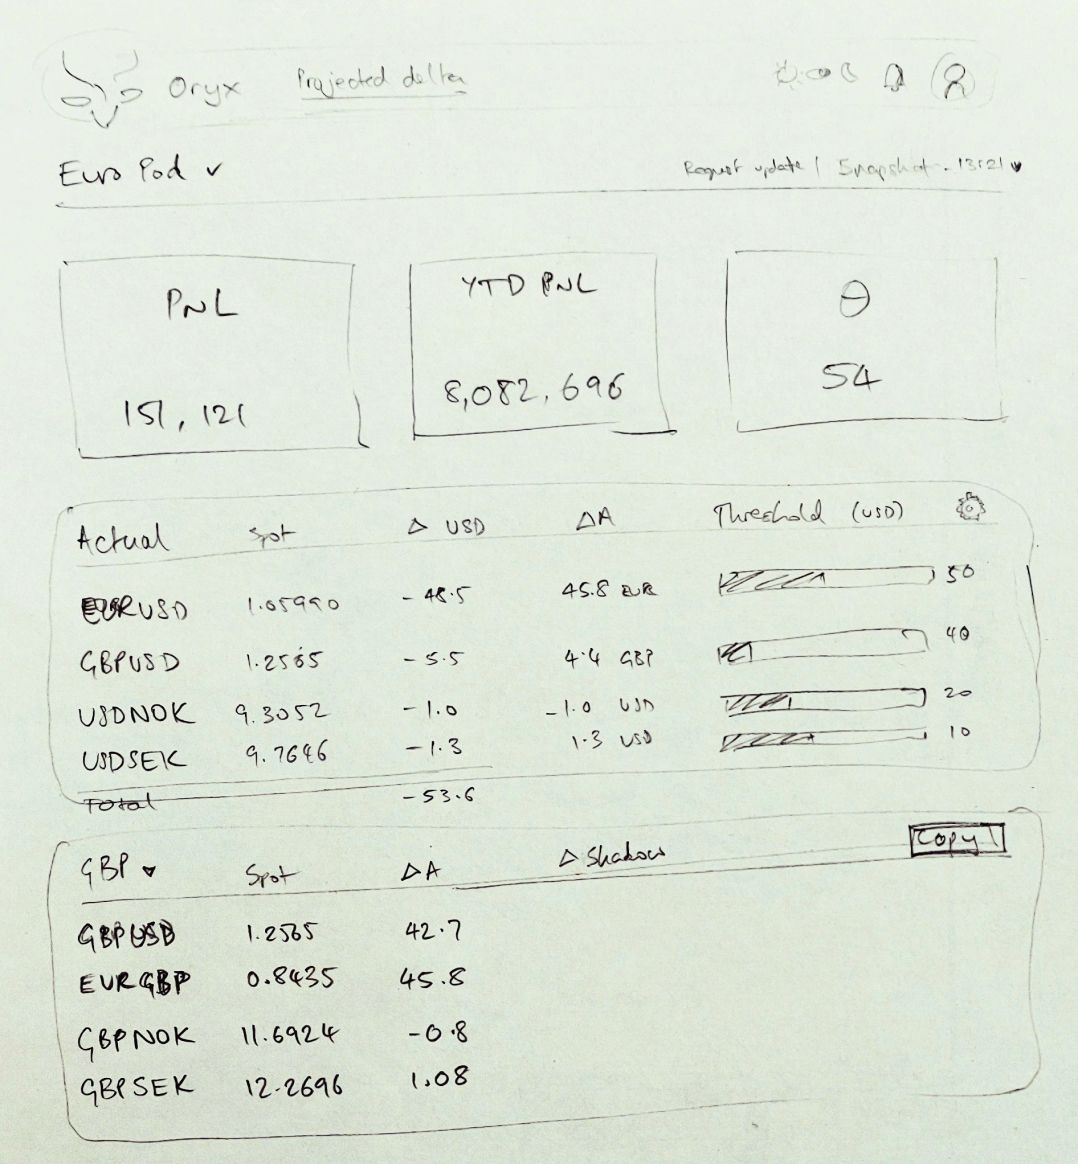 Oryx Projected delta
Euro Pod
Request update | Snapshot. 13:21
PNL
151,121
YTD PNL
8,082,696
Θ
54
Actual Spot Δ USD ΔA Threshold (USD)
EURUSD 1.05990 -48.5 45.8 EUR 50
GBPUSD 1.2565 -5.5 4.4 GBP 40
USDNOK 9.3052 -1.0 -1.0 USD 20
USDSEK 9.7646 -1.3 1.3 USD 10
Total -53.6
GBP Spot ΔA Δ Shadow Copy
GBPUSD 1.2565 42.7
EURGBP 0.8435 45.8
GBPNOK 11.6924 -0.8
GBPSEK 12.2696 1.08